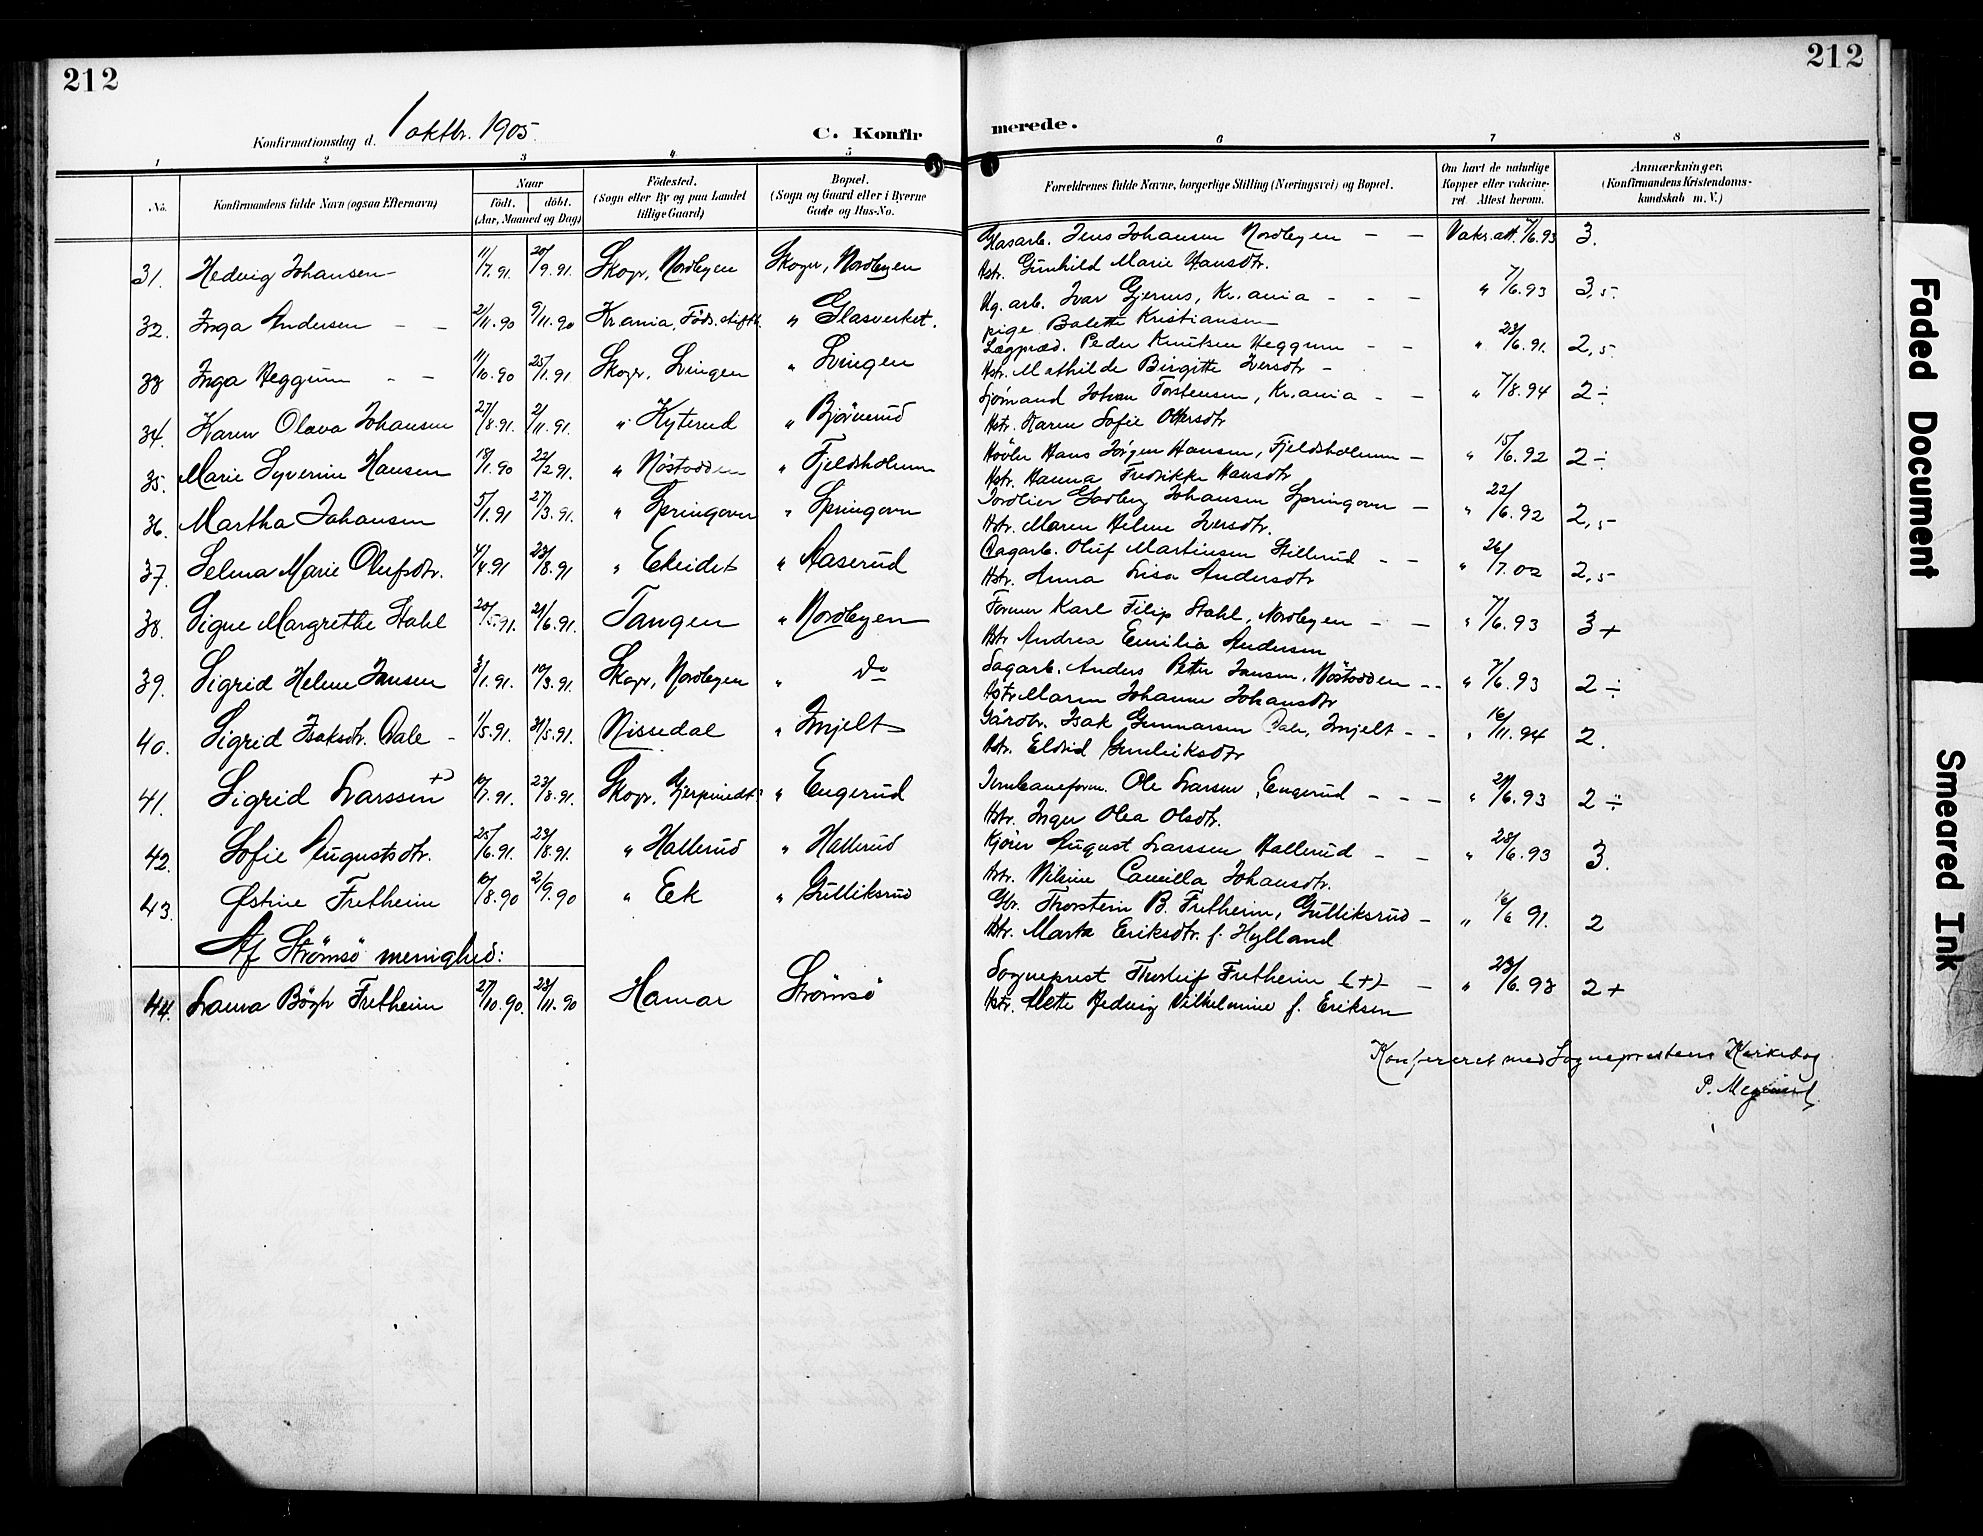 212
212
Konfirmationsdag d. 1 oktbr. 1905.
C. Konfir
merede.
1 2 3 4 5 6 7 8
No.
Konfirmandens fulde Navn (ogsaa Efternavn)
Naar
født. døbt.
(Aar, Maaned og Dag)
Fødested.
(Sogn eller By og paa Landet
tillige Gaard)
Bopæl.
(Sogn og Gaard eller i Byerne
Gade og Hus-No.
Forældrenes fulde Navne, borgerlige Stilling (Næringsvei) og Bopæl.
Om havt de naturlige
Kopper eller vakcine-
ret. Attest herom.
Anmærkninger.
(Konfirmandens Kristendoms-
kundskab m. V.)
31. Hedvig Johansen - 11/7.91. 20/9.91. Skoger, Nordbyen Skoger, Nordbyen Glasarb. Jens Johansen Nordbyen - - Vaks.att. 7/6.93 3.
Hstr. Gunhild Marie Hansdtr.
32. Inga Andersen - - 2/11.90 9/11.90 Kr.ania, Føds.stiftl. " Glasverket. Ug.arb. Ivar Gjerms, Kr.ania - - - " 7/6.93 3,5.
pige Bolette Kristiansen
33 Inga Heggum - - 11/10.90 25/1.91 Skoger, Svingen " Svingen Lægpræd. Peder Knutsen Heggum - - " 23/6.91. 2,5
Hstr. Mathilde Birgitte Iversdtr -
34. Karen Olava Johansen 27/8.91. 2/11.91. " Kyterud " Bjørnerud Sjømand Johan Torstensen, Kr.ania - - " 7/8.94 2÷
Hstr. Karen Sofie Ottersdtr
35. Marie Syverine Hansen 18/1.90 22/2.91. " Nøstodden " Fjeldsholmen Høvler Hans Jørgen Hansen, Fjeldsholmen - " 15/6.92 2÷
Hstr. Hanna Fredrikke Hansdtr
36. Martha Johansen 5/1.91 27/3.91. " Springoven " Springovn Jordeier Gudberg Johansen Springoven - " 22/6.92 2,5
Hstr. Maren Helene Iversdtr.
37. Selma Marie Olufsdtr. 4/4.91 23/8.91 " Ekeidet " Aaserud Dagarb. Oluf Martinsen Stillerud - - " 26/7.02 2,5
Hstr. Anna Lisa Andersdtr
38. Signe Margrethe Stahl 20/5.91. 21/6.91. Tangen " Nordbyen Former Karl Filip Stahl, Nordbyen - - " 7/6.93 3+
Hstr Andrea Emilia Andersen
39. Sigrid Helene Jansen 3/1.91. 10/3.91. Skoger, Nordbyen " do Sagarb. Anders Petter Jansen, Nøstodden - - " 7/6.93 2÷
Hstr Maren Johanne Johansdtr
40. Sigrid Isaksdtr. Dale - 1/5.91. 31/5.91. Nissedal " Imjelt Gårdbr. Isak Gunnarsen Dale, Imjelt - - " 16/11.94 2.
Hstr. Eldrid Gundriksdtr
41. Sigrid Larssen 10/7.91. 23/8.91. Skoger, Gjerpinedt " Engerud Jernbaneform. Ole Larsen, Engerud - - - " 21/6.93 2÷
Hstr. Inger Olea Olsdtr.
42. Sofie Augustsdtr. 25/6.91. 23/8.91. " Hallerud " Hallerud Kjører August Larssen Hallerud - - " 28/6.93 3.
Hstr. Nilsine Camilla Johansdtr.
43. Østine Fretheim 10/8.90 21/9.90 " Eek " Gulliksrud Gbr. Thorstein B. Fretheim, Gulliksrud - " 16/6 91. 2
Hstr. Marta Eriksdtr. f. Hylland
Af Strømsø menighed:
44. Laura Bøgh Fretheim 27/10.90. 23/11.90 Hamar Strømsø Sogneprest Thorleif Fretheim (+) - " 23/6.93 2+
Hstr. Mette Hedvig Vilhelmine f. Eriksen
Konfereret med Sogneprestens Kirkebog
P.
Faded Document
Smeared Ink